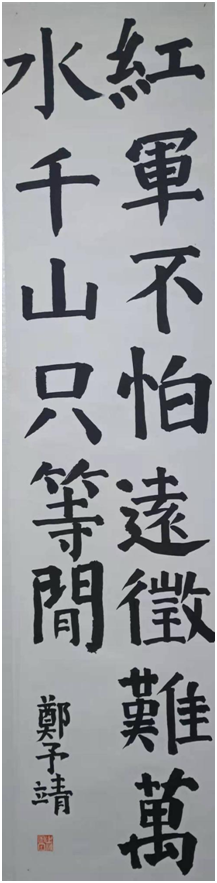 紅軍不怕遠徵難萬
水千山只等閒
鄭予靖